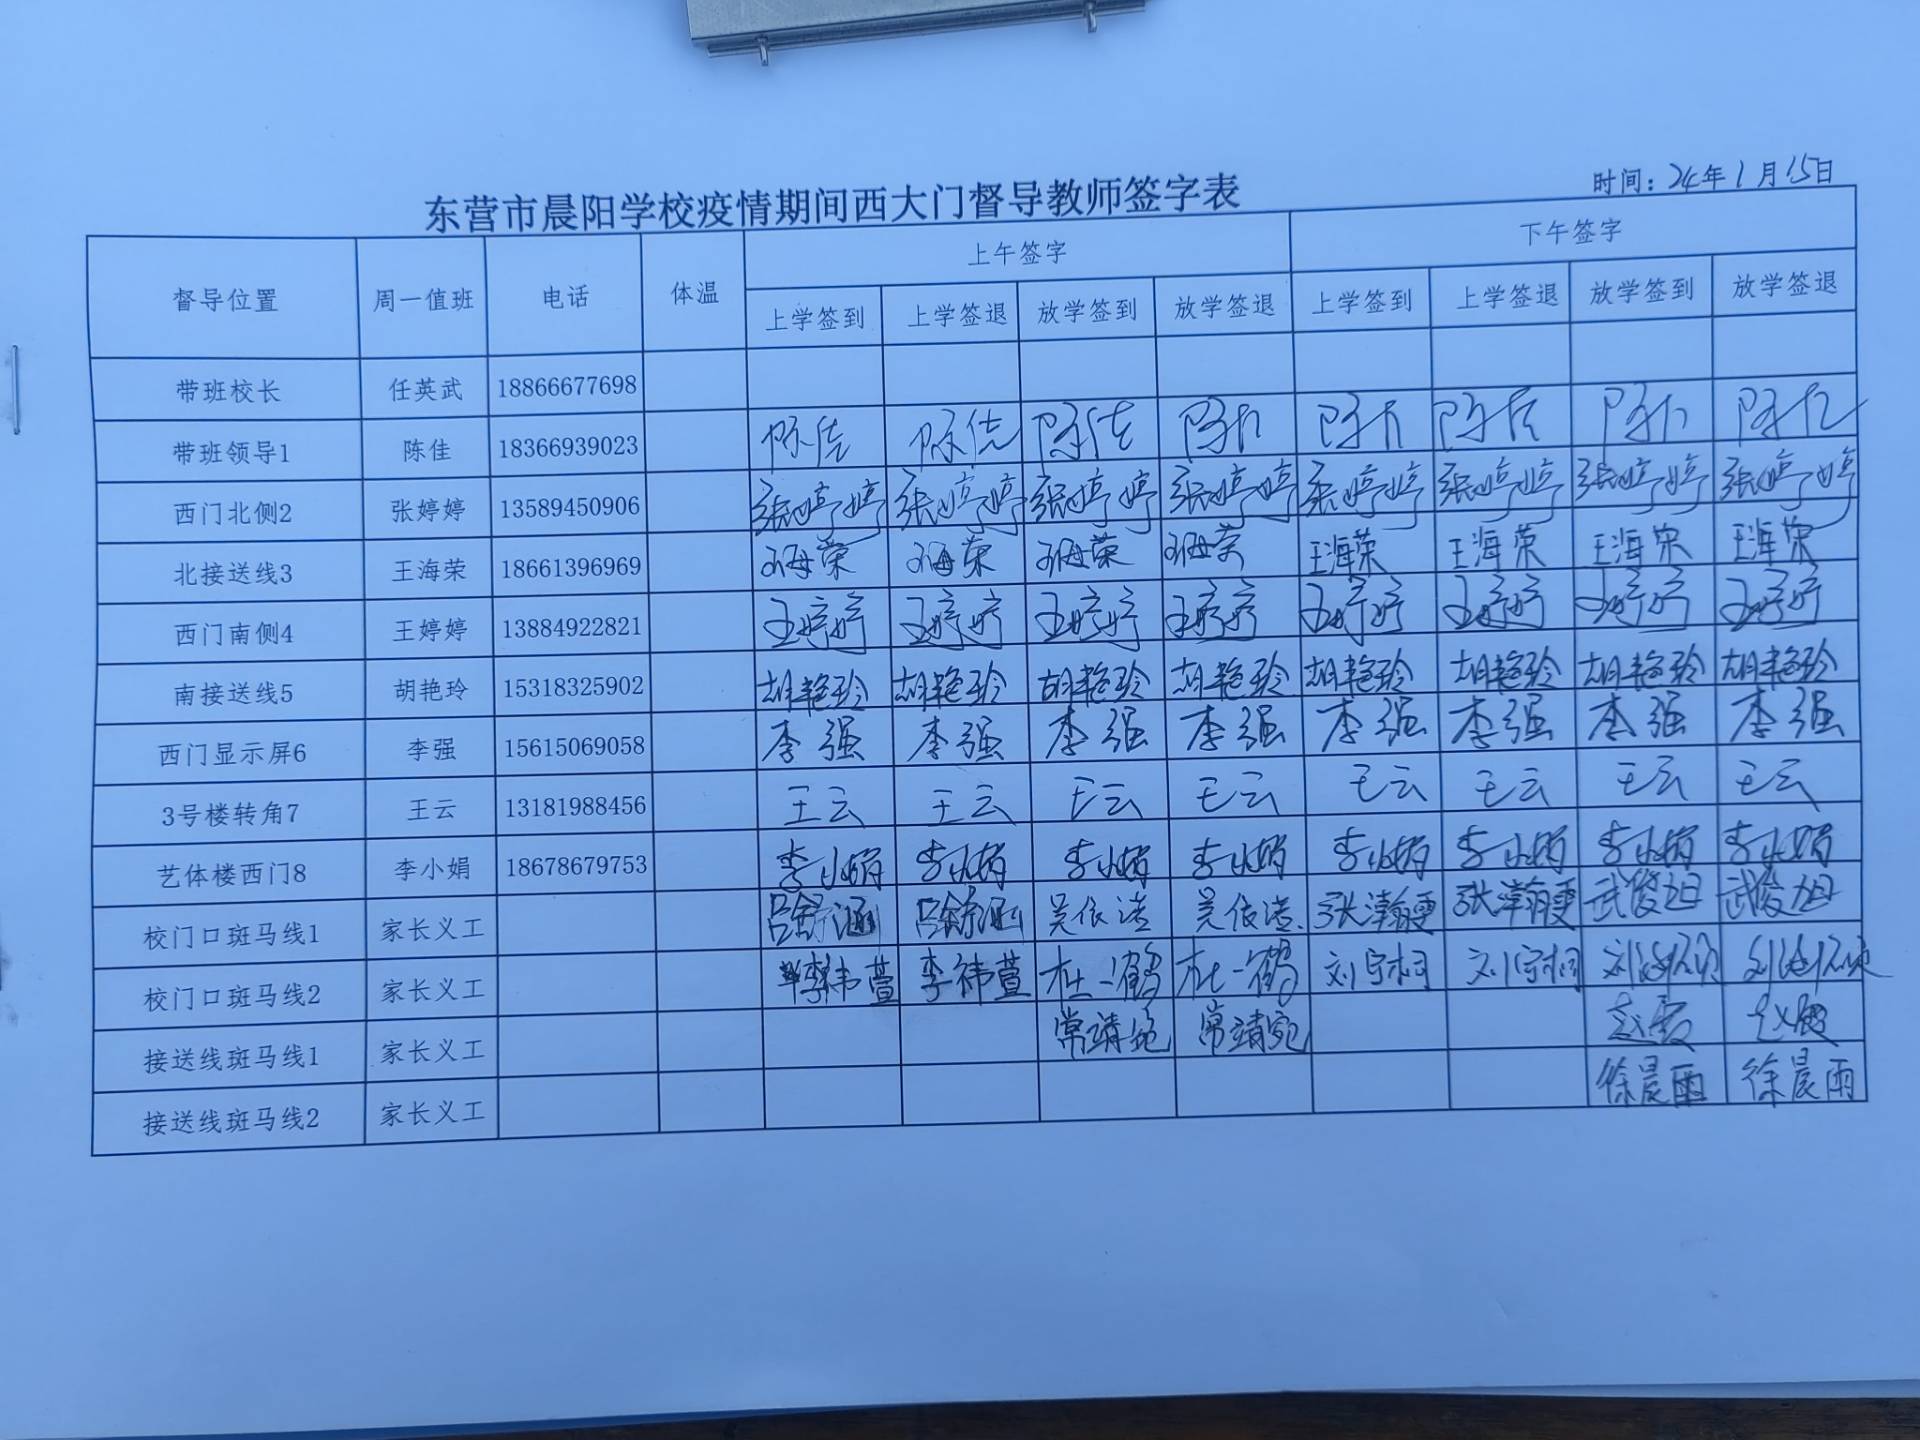 东营市晨阳学校疫情期间西大门督导教师签字表
时间：24年1月15日
督导位置 周一值班 电话 体温 上午签字 下午签字
上学签到 上学签退 放学签到 放学签退 上学签到 上学签退 放学签到 放学签退
带班校长 任英武 18866677698
带班领导1 陈佳 18366939023 陈佳 陈佳 陈佳 陈佳 陈佳 陈佳 陈佳 陈佳
西门北侧2 张婷婷 13589450906 张婷婷 张婷婷 张婷婷 张婷婷 张婷婷 张婷婷 张婷婷 张婷婷
北接送线3 王海荣 18661396969 王海荣 王海荣 王海荣 王海荣 王海荣 王海荣 王海荣 王海荣
西门南侧4 王婷婷 13884922821 王婷婷 王婷婷 王婷婷 王婷婷 王婷婷 王婷婷 王婷婷 王婷婷
南接送线5 胡艳玲 15318325902 胡艳玲 胡艳玲 胡艳玲 胡艳玲 胡艳玲 胡艳玲 胡艳玲 胡艳玲
西门显示屏6 李强 15615069058 李强 李强 李强 李强 李强 李强 李强 李强
3号楼转角7 王云 13181988456 王云 王云 王云 王云 王云 王云 王云 王云
艺体楼西门8 李小娟 18678679753 李小娟 李小娟 李小娟 李小娟 李小娟 李小娟 李小娟 李小娟
校门口斑马线1 家长义工 吕舒涵 吕舒涵 吴依洁 吴依洁 张瀚雯 张瀚雯 武俊旭 武俊旭
校门口斑马线2 家长义工 李祎萱 李祎萱 杜一鹤 杜一鹤 刘宇桐 刘宇桐
接送线斑马线1 家长义工 常靖宛 常靖宛
接送线斑马线2 家长义工 徐晨雨 徐晨雨